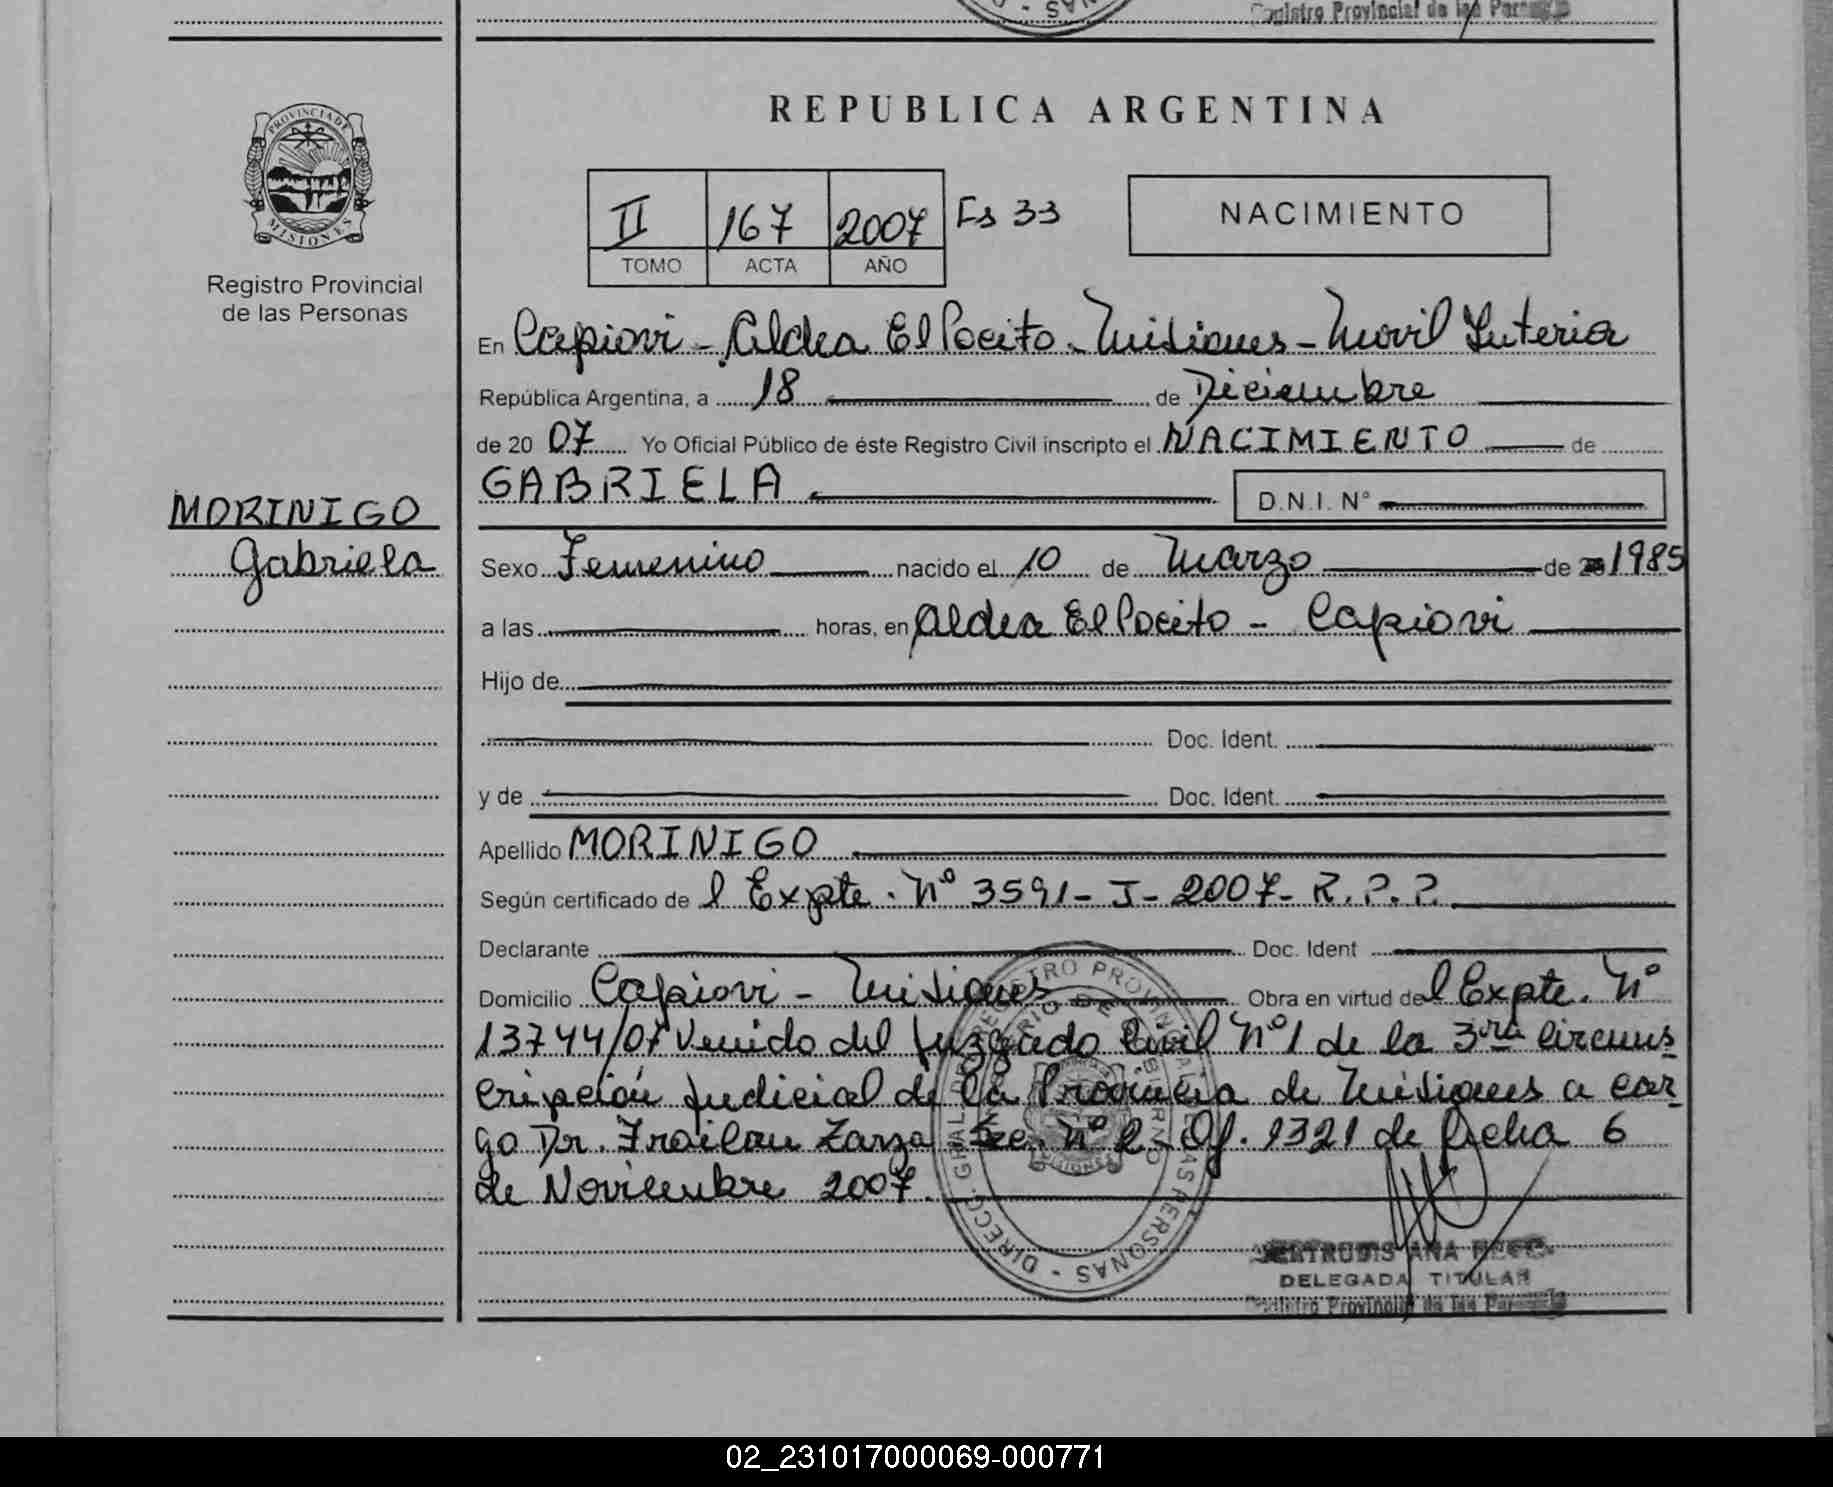 Registro Provincial de las
REPUBLICA ARGENTINA
PROVINCIA DE
MISIONES
Registro Provincial
de las Personas
II 167 2007 Fs 33
TOMO ACTA AÑO
NACIMIENTO
En Capiovi - Aldea El Pocito - Misiones - Movil Interior
República Argentina, a 18 de Diciembre
de 20 07 Yo Oficial Público de éste Registro Civil inscripto el NACIMIENTO de
GABRIELA D.N.I. Nº
MORINIGO
Gabriela
Sexo Femenino nacido el 10 de Marzo de 20 1985
a las horas, en Aldea El Pocito - Capiovi
Hijo de
Doc. Ident.
y de Doc. Ident.
Apellido MORINIGO
Según certificado de l Expte. Nº 3591- J- 2007- R.P.P.
Declarante Doc. Ident
Domicilio Capiovi - Misiones Obra en virtud de l Expte. Nº
13744/07 Venido del Juzgado Civil Nº1 de la 3ra Circuns
cripción Judicial de la Provincia de Misiones a car
go Dr. Froilan Zarza Sec. Nº 2 - Of. 1321 de fecha 6
de Noviembre 2007.
DIRECC. GRAL. DE REGISTRO PROVINCIAL DE LAS PERSONAS
GERTRUDIS ANA
DELEGADA TITULAR
Registro Provincial de las Personas
02_231017000069-000771